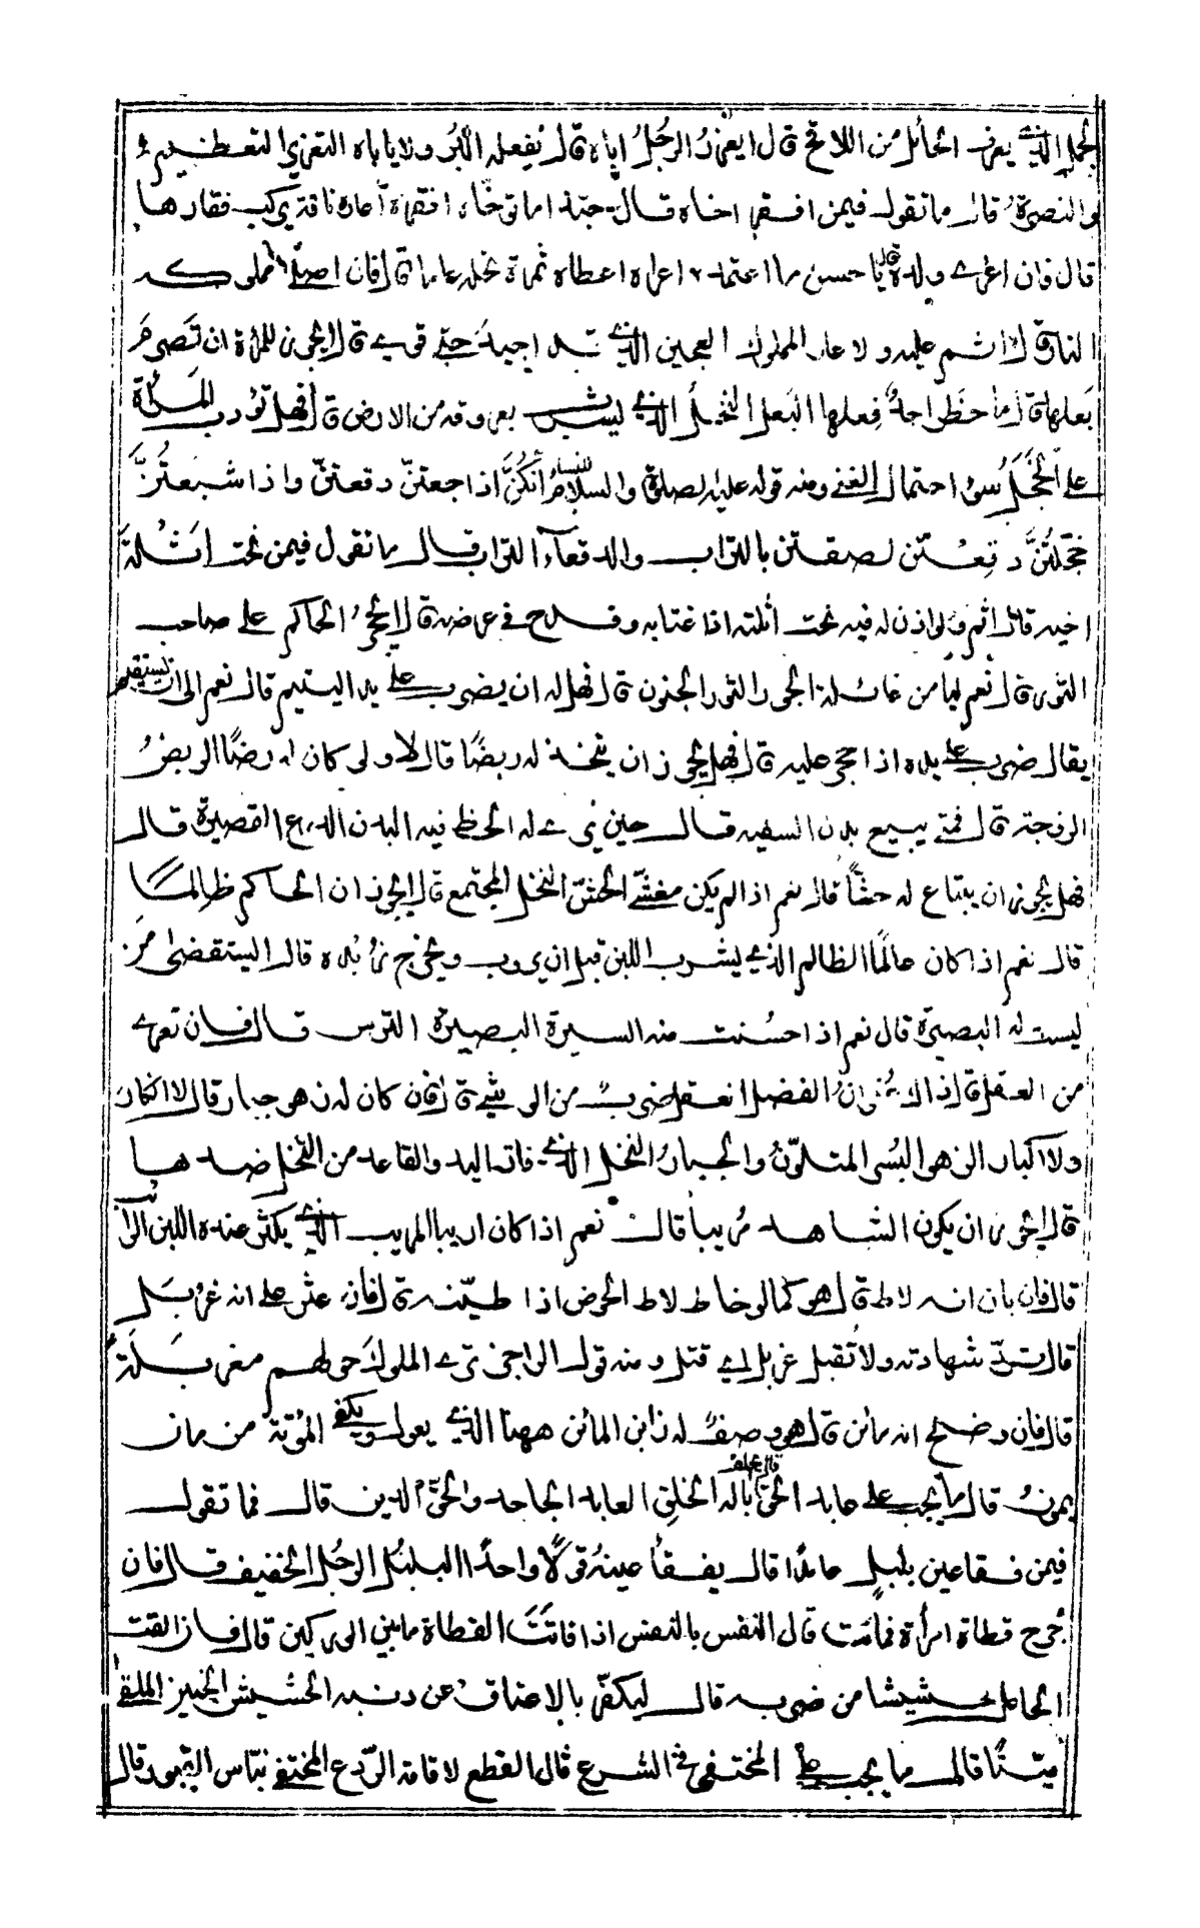 الجمل الذي يعرف الحائل من اللاقح قال ايعزر الرجل اباه قال يفعله البر ولا ياباه التعزير التعظيم
والنصرة قال ما تقول فيمن افقر اخاه قال حبذا ما توخاه افقره اعاره ناقة يركب فقارها
قال فان اعرى ولده قال يا حسن ما اعتمد اعراه اعطاه ثمرة نخله عاما قال فان اصلى مملوكه
النار قال لا اثم عليه ولا عار المملوك العجين الذي قد اجيد حتى قوي قال ايجوز للمراة ان تصرم
بعلها قال ما حظر احد فعلها البعل النخل الذي يشرب بعروقه من الارض قال فهل تؤدب المرأة
على الخجل سوء احتمال الغنى ومنه قوله عليه الصلوة والسلام للنساء انكن اذا جعتن دقعتن واذا شبعتن
خجلتن دقعتن لصقتن بالتراب والدقعاء التراب قال ما تقول فيمن نحت اثلة
اخيه قال اثم ولو اذن له فيه نحت اثلته اذا اغتابه وقدح في عرضه قال ايحجر الحاكم على صاحب
الثور قال نعم ليأمن غائلة الجور الثور الجنون قال فهل له ان يضرب على يد اليتيم قال نعم الى ان يستقيم
يقال ضرب على يده اذا حجر عليه قال فهل يجوز ان يتخذ له ربضا قال لا ولو كان له رضا الربض
الزوجة قال فمتى يبيع بدن السفيه قال حين يرى له الحظ فيه البدن الدرع القصيرة قال
فهل يجوز ان يبتاع له حشا قال نعم اذا لم يكن مغشى الحش النخل المجتمع قال ايجوز ان الحاكم ظالما
قال نعم اذا كان عالما الظالم الذي يشرب اللبن قبل ان يروب ويخرج زبده قال ايستقضى من
ليست له البصيرة قال نعم اذا حسنت منه السيرة البصيرة الترس قال فان تعرى
من العقل قال ذاك عنوان الفضل العقل ضرب من الوشي قال فان كان له زهو جبار قال لا انكار
ولا اكبار الزهو البسر المتلون والجبار النخل الذي فات اليد والقاعد من النخل ضدها
قال ايجوز ان يكون الشاهد مريبا قال نعم اذا كان اريبا المريب الذي يكثر عنده اللبن الرائب
قال فان بان انه لاط قال هو كما لو خاط لاط الحوض اذا طينه قال فان عثر على انه غربل
قال ترد شهادته ولا تقبل غربل اي قتل ومنه قول الراجز ترى الملوك حولهم مغربلة
قال فان وضح انه مائن قال هو وصف له زائن المائن ههنا الذي يعول ويكفي المؤنة من مان
يمون قال ما يجب على عابد الحق قال يحلف بإله الخلق العابد الجاحد والحق الدين قال فما تقول
فيمن فقأ عين بلبل عامدا قال يفقأ عينه قولا واحدا البلبل الرجل الخفيف قال فان
جرح قطاة امرأة فماتت قال النفس بالنفس اذا فاتت القطاة ما بين الوركين قال فان القت
الحامل حشيشا من ضربه قال ليكفر بالاعتاق عن ذنبه الحشيش الجنين الملقى
ميتا قال ما يجب على المختفي في الشرع قال القطع لاقامة الردع المختفي نباش القبور قال